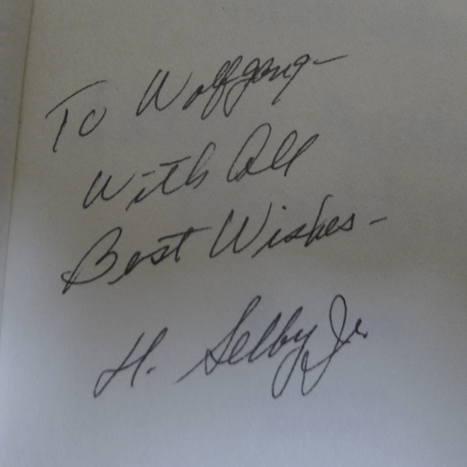 To Wolfgang-
With All
Best Wishes-
H. Selby Jr.